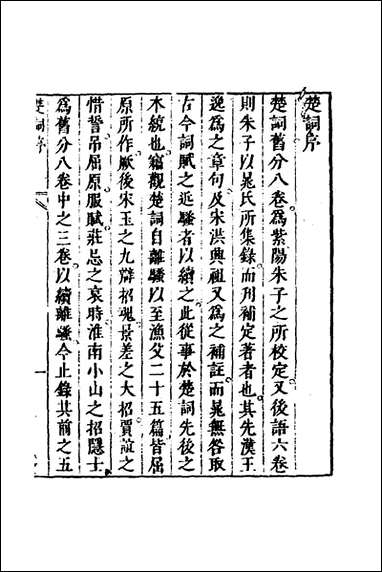 楚詞序
楚詞舊分八卷為紫陽朱子之所校定又後語六卷
則朱子以晁氏所集錄而刋補定著者也其先漢王
逸為之章句及宋洪興祖又為之補註而晁無咎取
古今詞賦之近騷者以續之此從事於楚詞先後之
本統也竊觀楚詞自離騷以至漁父二十五篇皆屈
原所作厥後宋玉之九辯招魂景差之大招賈誼之
惜誓吊屈原服賦莊忌之哀時淮南小山之招隱士
為舊分八卷中之三卷以續離騷今止錄其前之五
楚詞序
一